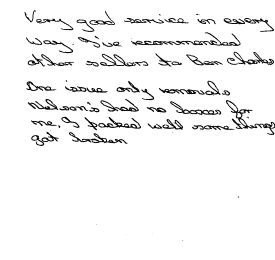 Very good service in every
way. I've recommended
other sellers to Ben Charles
One issue only removals
Nelson's had no boxes for
me, I packed well some things
got broken